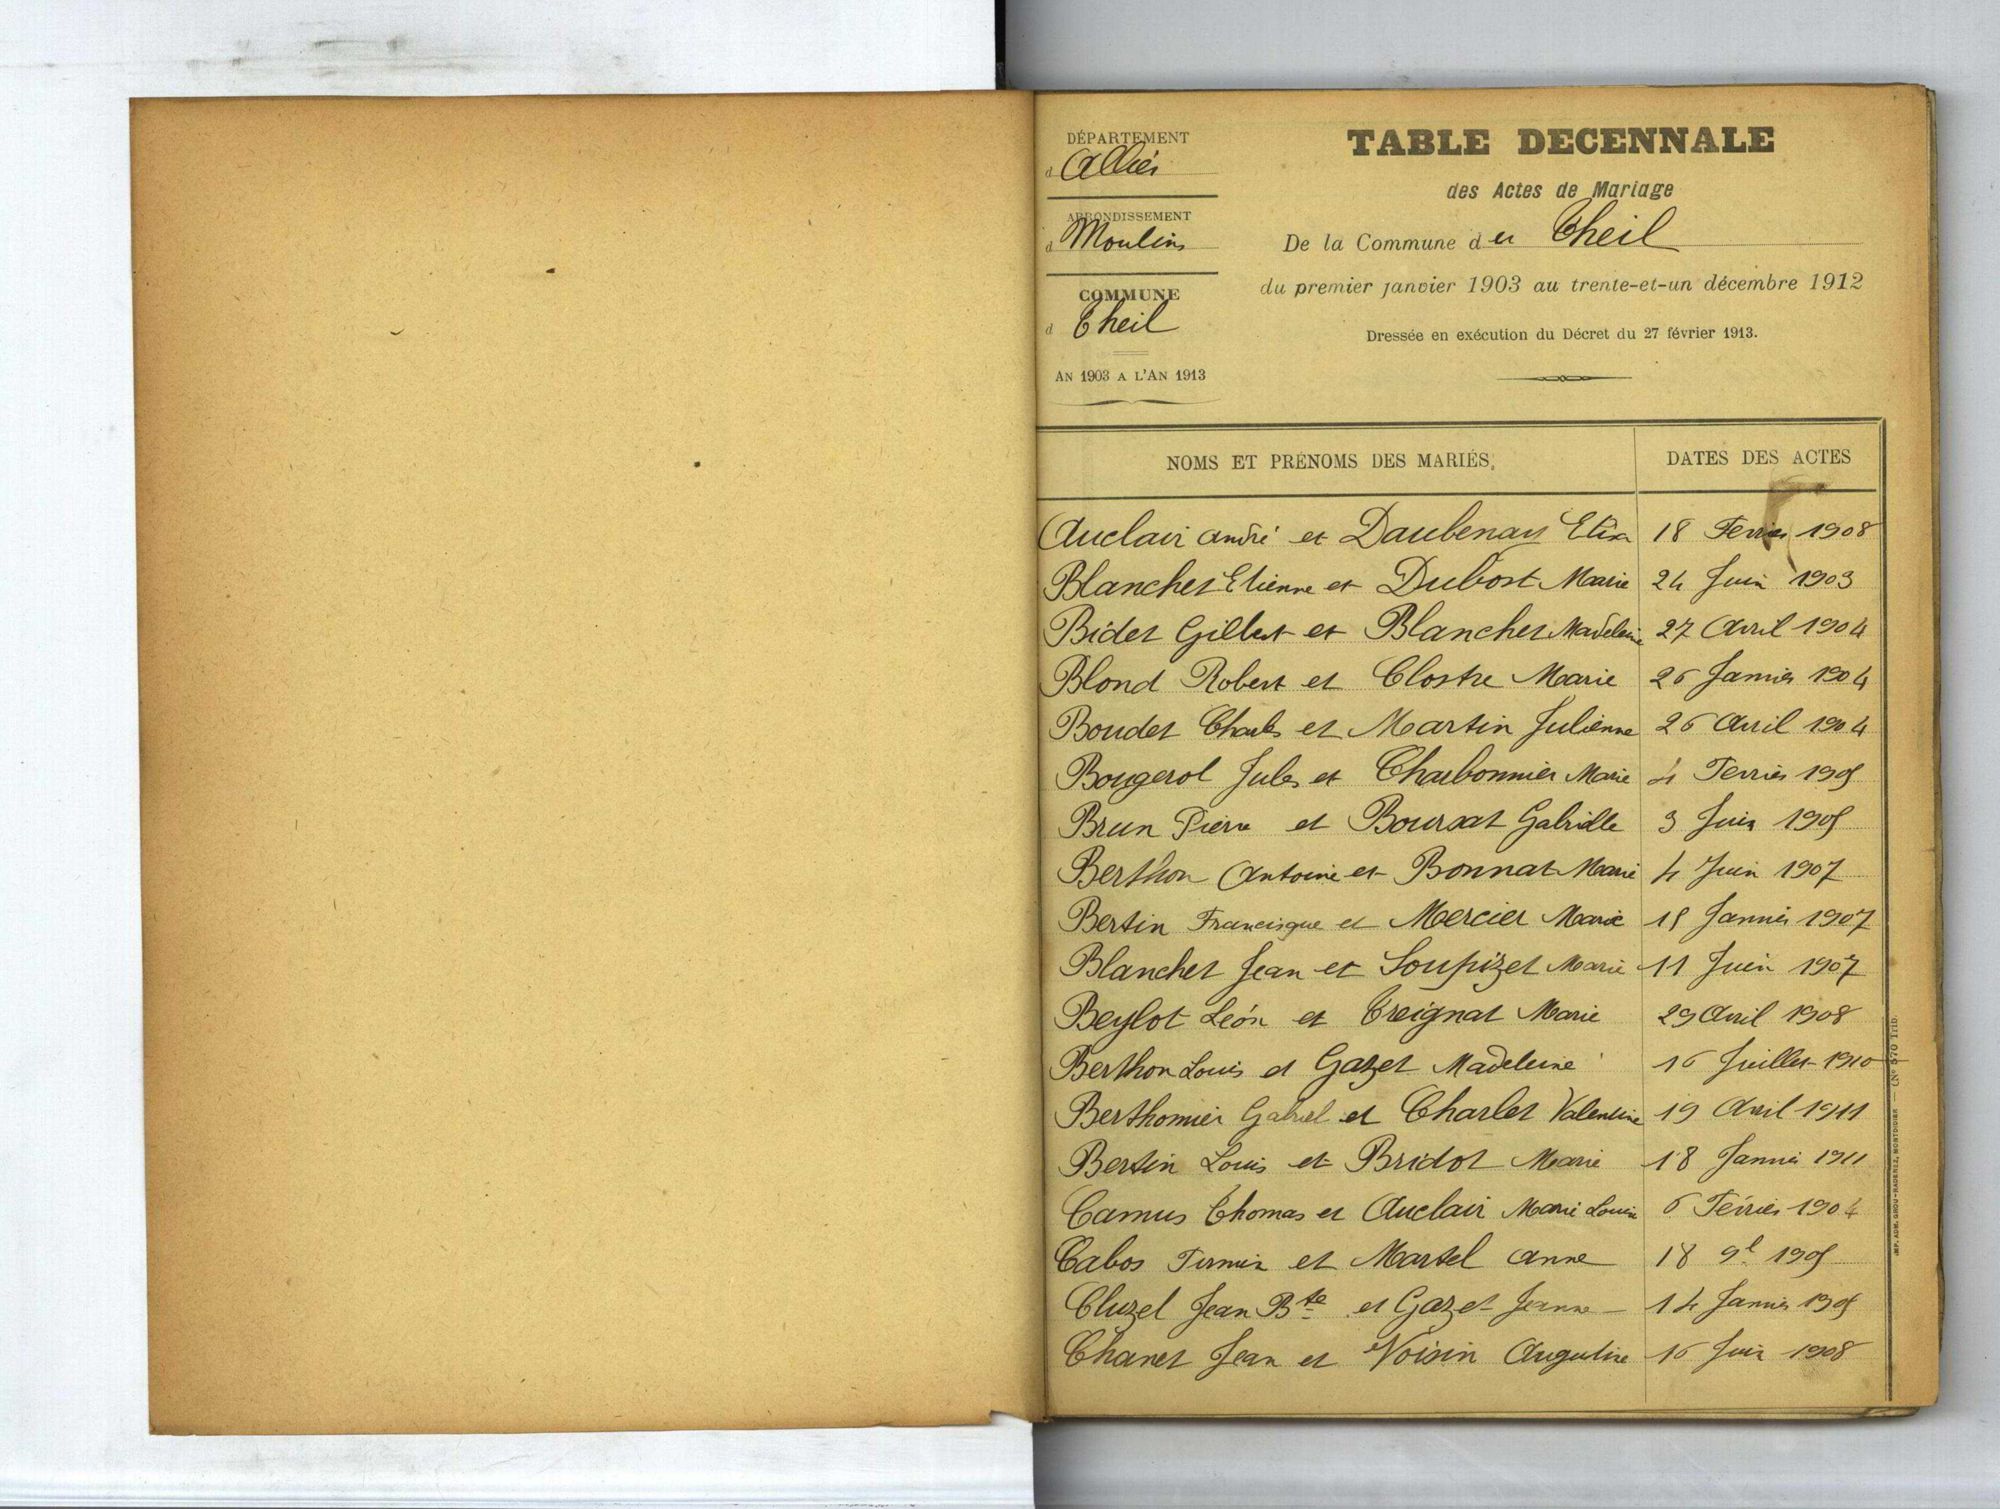 DÉPARTEMENT
d Allier
ARRONDISSEMENT
d Moulins
COMMUNE
d Theil
AN 1903 A L'AN 1913
TABLE DECENNALE
des Actes de Mariage
De la Commune d u Theil
du premier janvier 1903 au trente-et-un décembre 1912
Dressée en exécution du Décret du 27 février 1913.
NOMS ET PRÉNOMS DES MARIÉS. DATES DES ACTES
Auclair André et Daubenay Elisa 18 Fevrier 1908
Blanchet Etienne et Dubost Marie 24 Juin 1903
Bidet Gilbert et Blanchet Madeleine 27 Avril 1904
Blond Robert et Clostre Marie 26 Janvier 1904
Boudet Charles et Martin Julienne 26 Avril 1904
Bougerol Jules et Charbonnier Marie 4 Fevrier 1905
Brun Pierre et Boursat Gabrielle 3 Juin 1905
Berthon Antoine et Bonnat Marie 4 Juin 1907
Bertin Francisque et Mercier Marie 15 Janvier 1907
Blanchet Jean et Soupizet Marie 11 Juin 1907
Beylot Léon et Treignat Marie 29 Avril 1908
Berthon Louis et Gazet Madeleine 16 Juillet 1910
Berthomier Gabriel et Charlet Valentine 19 Avril 1911
Bertin Louis et Bridot Marie 18 Janvier 1911
Camus Thomas et Auclair Marie Louise 6 Février 1904
Cabos Firmin et Martel Anne 18 9b 1905
Cluzel Jean Bte et Gazet Jeanne 14 Janvier 1905
Chanet Jean et Voisin Augustine 16 Juin 1908
IMP. ADM. GROU-RADENEZ, MONTDIDIER — (N° 570 TTD.